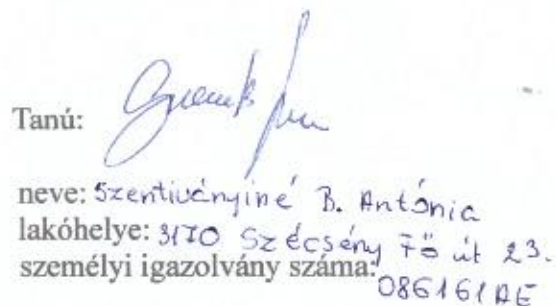 Tanú:
neve: Szentiványiné B. Antónia
lakóhelye: 3170 Szécsény Fő út 23.
személyi igazolvány száma: 086161AE